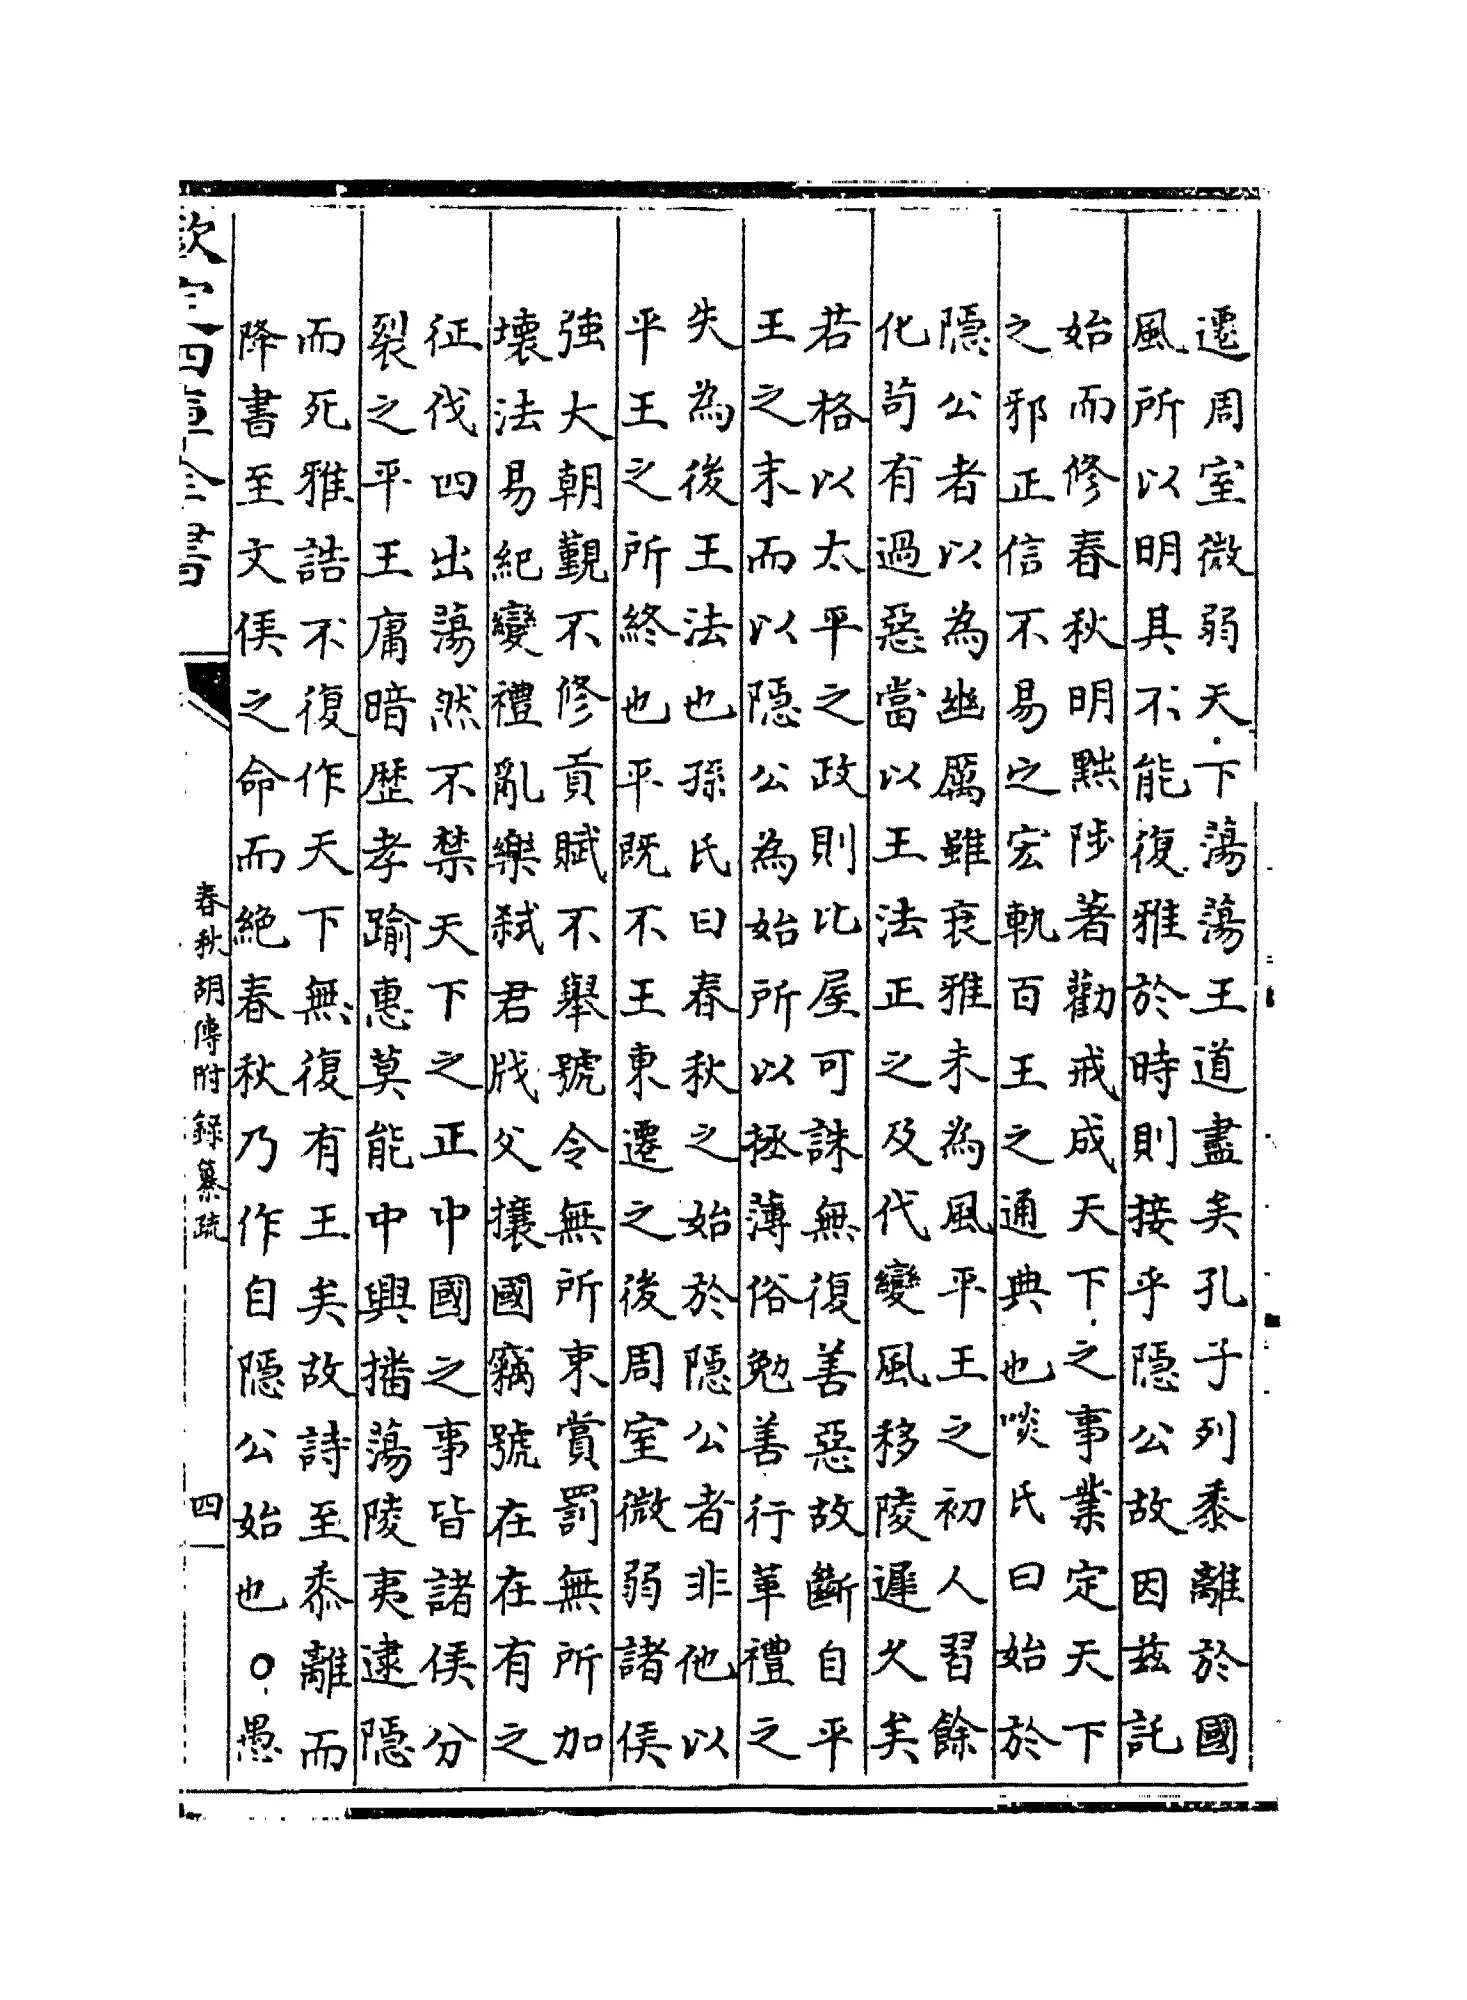 遷周室微弱天下蕩蕩王道盡矣孔子列黍離於國
風所以明其不能復雅於時則接乎隱公故因茲託
始而修春秋明黜陟著勸戒成天下之事業定天下
之邪正信不易之宏軌百王之通典也啖氏曰始於
隱公者以為幽厲雖衰雅未為風平王之初人習餘
化苟有過惡當以王法正之及代變風移陵遲久矣
若格以太平之政則比屋可誅無復善惡故斷自平
王之末而以隱公為始所以拯薄俗勉善行革禮之
失為後王法也孫氏曰春秋之始於隱公者非他以
平王之所終也平既不王東遷之後周室微弱諸侯
強大朝覲不修貢賦不舉號令無所束賞罰無所加
壞法易紀變禮亂樂弑君戕父攘國竊號在在有之
征伐四出蕩然不禁天下之正中國之事皆諸侯分
裂之平王庸暗歷孝踰惠莫能中興播蕩陵夷逮隱
而死雅誥不復作天下無復有王矣故詩至黍離而
降書至文侯之命而絕春秋乃作自隱公始也○愚
欽定四庫全書
春秋胡傳附錄纂疏
四